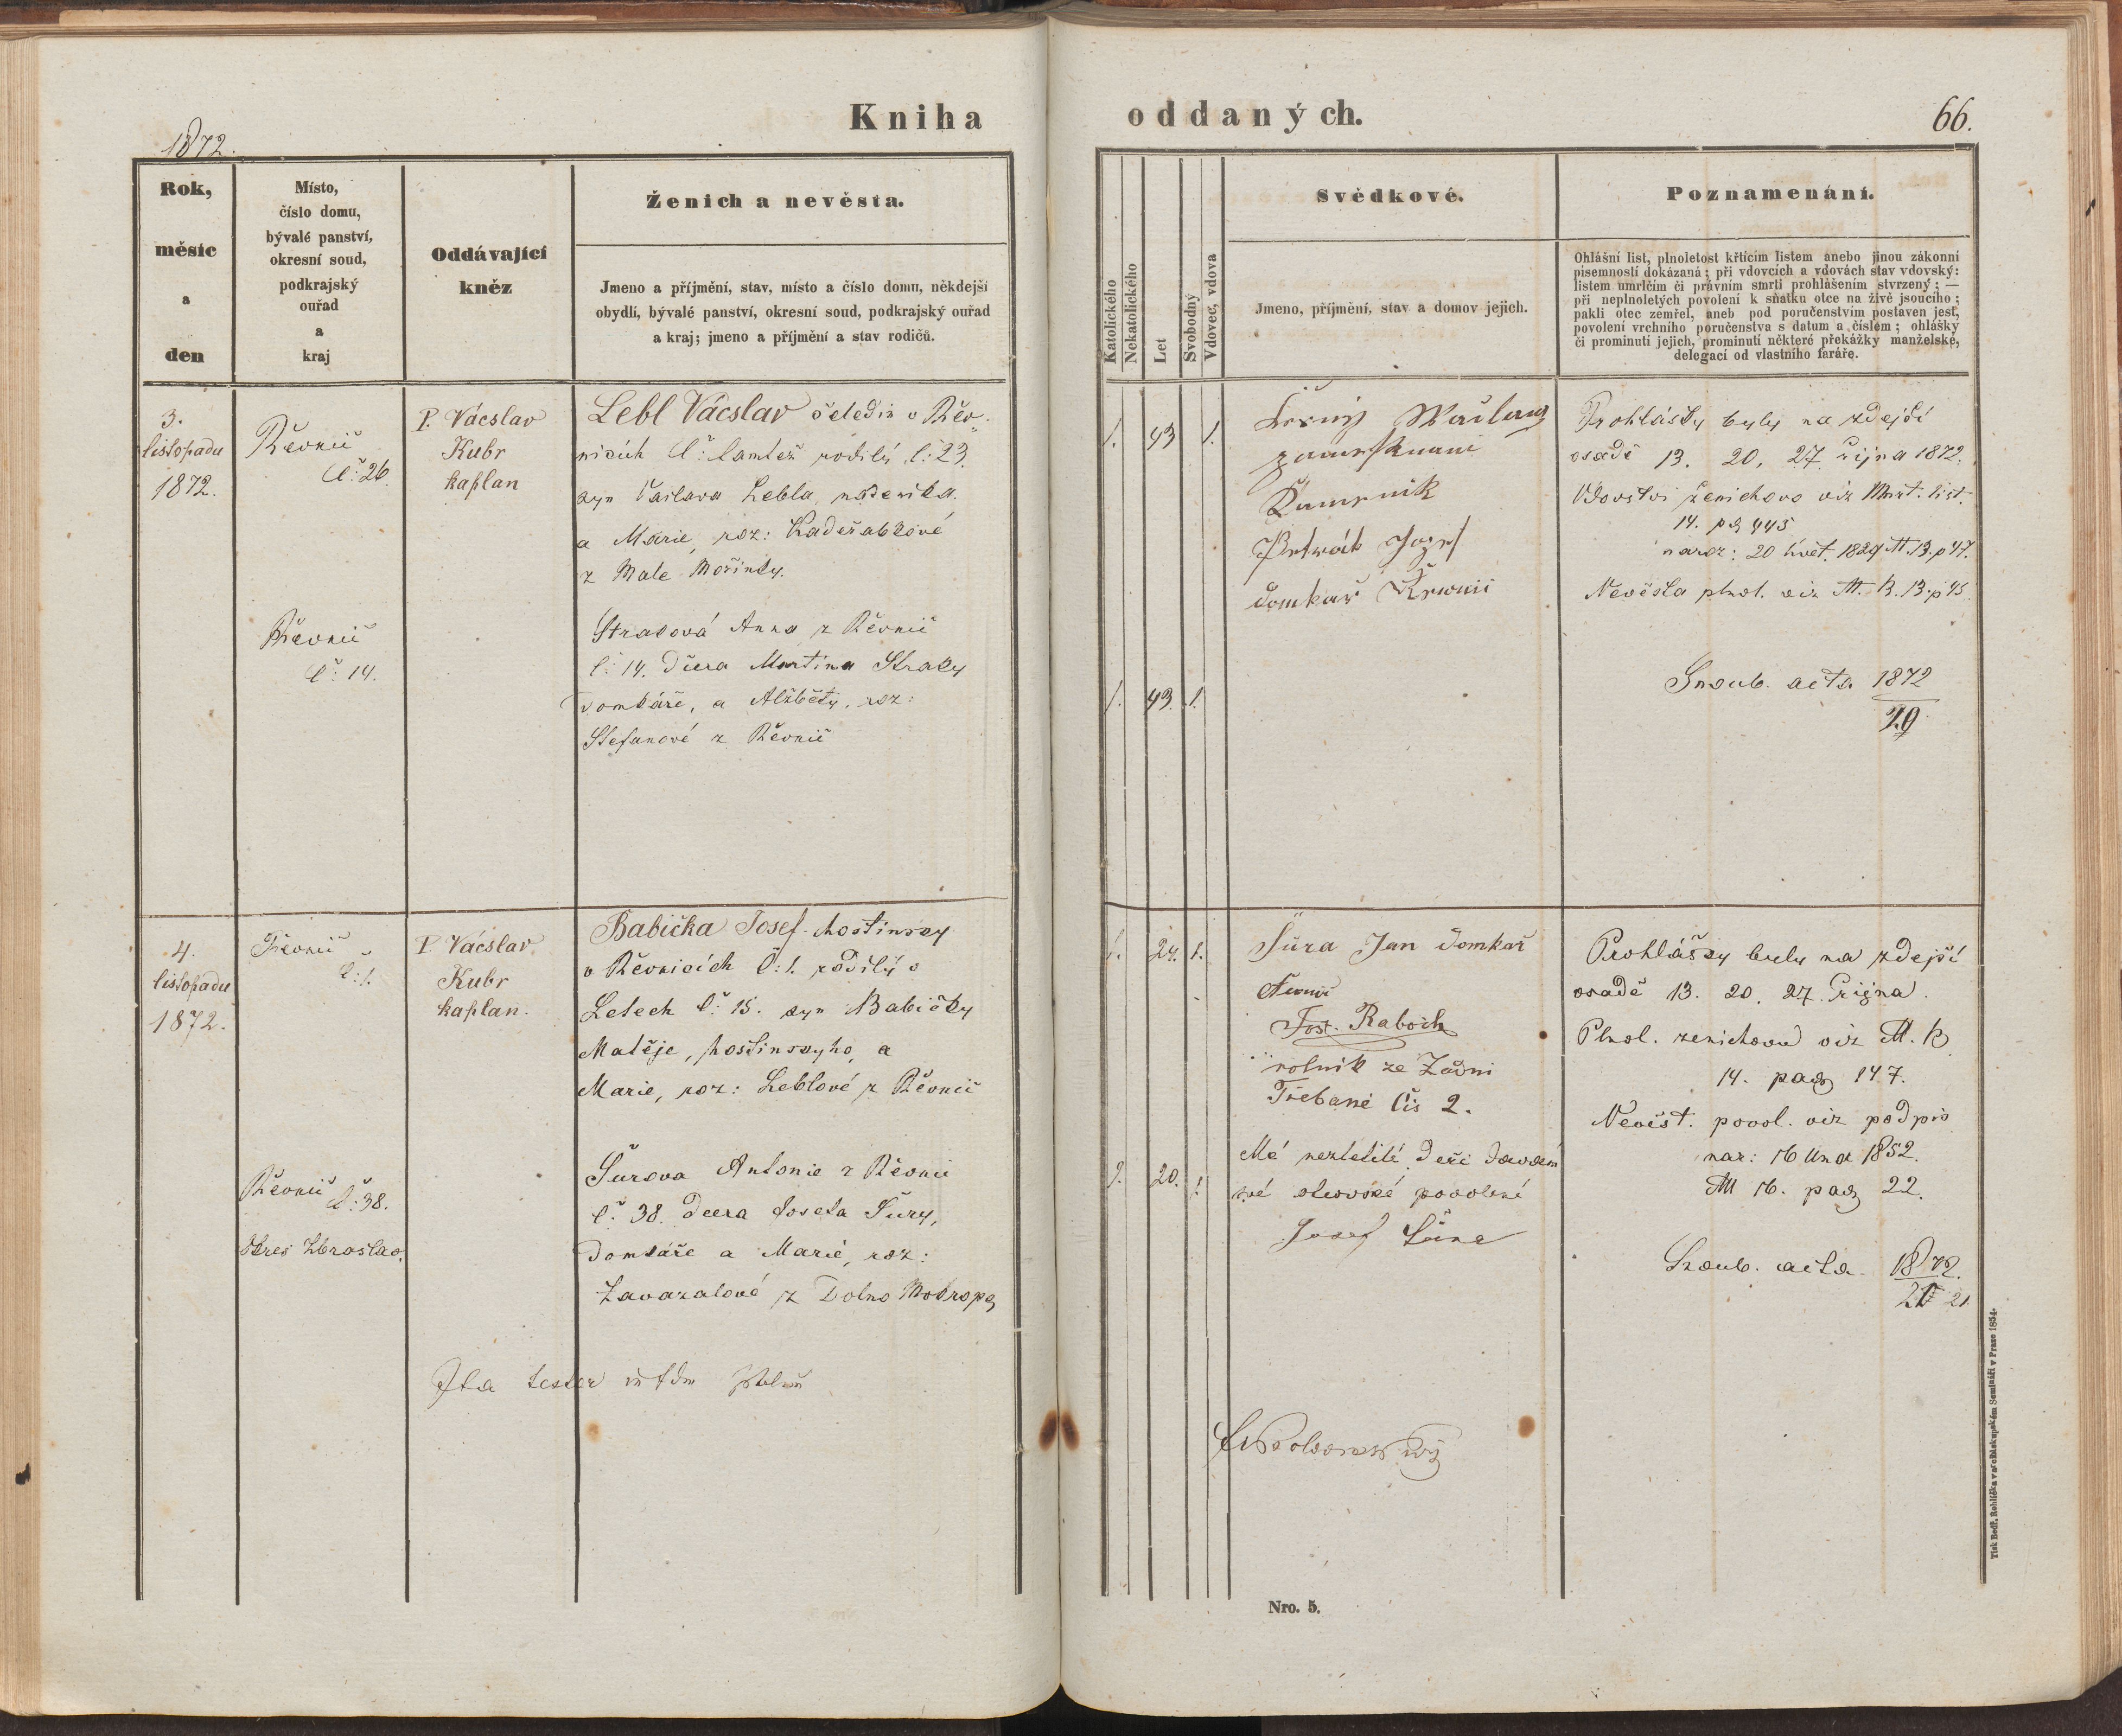 Kniha
1872.
Rok,
měsíc
a
den
Místo,
číslo domu,
bývalé panství,
okresní soud,
podkrajský
ouřad
a
kraj
Oddávající
kněz
Ženich a nevěsta.
Jmeno a příjmění, stav, místo a číslo domu, někdejší
obydlí, bývalé panství, okresní soud, podkrajský ouřad
a kraj; jmeno a příjmění a stav rodičů.
3.
listopadu
1872.
Řevnic
č: 26.
P. Vácslav
Kubr
kaplan
Lebl Vácslav čeledín v Řev-
nicích č: tamtéž rodilý č: 23.
syn Václava Lebla, nádeníka.
a Marie, roz: Kadeřabkové
z Male Mořinky.
Řevnic
č: 14.
Straková Anna z Řevnic
č: 14. dcera Martina Straky
domkáře, a Alžběty, roz:
Štefanové z Řevnic
4.
listopadu
1872.
Řevnic
č: 1.
P. Vácslav
Kubr
kaplan.
Babička Josef hostinský
v Řevnicích č: 1. rodilý v
Letech č: 15. syn Babičky
Matěje, hostinskyho, a
Marie, roz: Leblové z Řevnic
Řevnic č: 38.
Okres Zbraslav.
Šurova Antonie z Řevnic
č: 38. dcera Josefa Šury,
domkáře a Marie, roz:
Zavazalové z Dolno Mokrops
Ita testor
oddaných.
66.
Katolického
Nekatolického
Let
Svobodný
Vdovec, vdova
Svědkové.
Jmeno, příjmění, stav a domov jejich.
Poznamenání.
Ohlášní list, plnoletost křtícím listem anebo jinou zákonní
písemností dokázaná; při vdovcích a vdovách stav vdovský:
listem úmrlčím či právním smrti prohlášením stvrzený; —
při neplnoletých povolení k sňatku otce na živě jsoucího;
pakli otec zemřel, aneb pod poručenstvím postaven jest,
povolení vrchního poručenstva s datum a číslem; ohlášky
či prominutí jejich, prominutí některé překážky manželské,
delegací od vlastního faráře.
1. 43 1.
Josef
domkař
Prohlášky byly na zdejší
osadě 13. 20. 27. října 1872.
Vdovství ženichovo viz
14. pg 445
naroz: 20 květ. 1829 M. 13. p 47.
Nevěsta plnol. viz M. R. 13. p 45
1. 43. 1.
Snoub. acta 1872
20
1. 24. 1.
Šůra Jan domkař
Jos. Raboch
rolník ze Zadní
Třebaně čís 2.
Prohlášky byly na zdejší
osadě 13. 20. 27. Října.
Plnol. ženichova viz M. R
14. pag 147.
Nevěst. povol. viz podpis
nar: 16 Una 1852.
M 16. pag 22.
1. 20. 1.
Mé nezletilé dceři davám
své otcovské povolení
Josef Šůra
Snoub. acta 1872.
21
Nro. 5.
Tisk Bedř. Rohlíčka v arcibiskupském Semináři v Praze 1854.